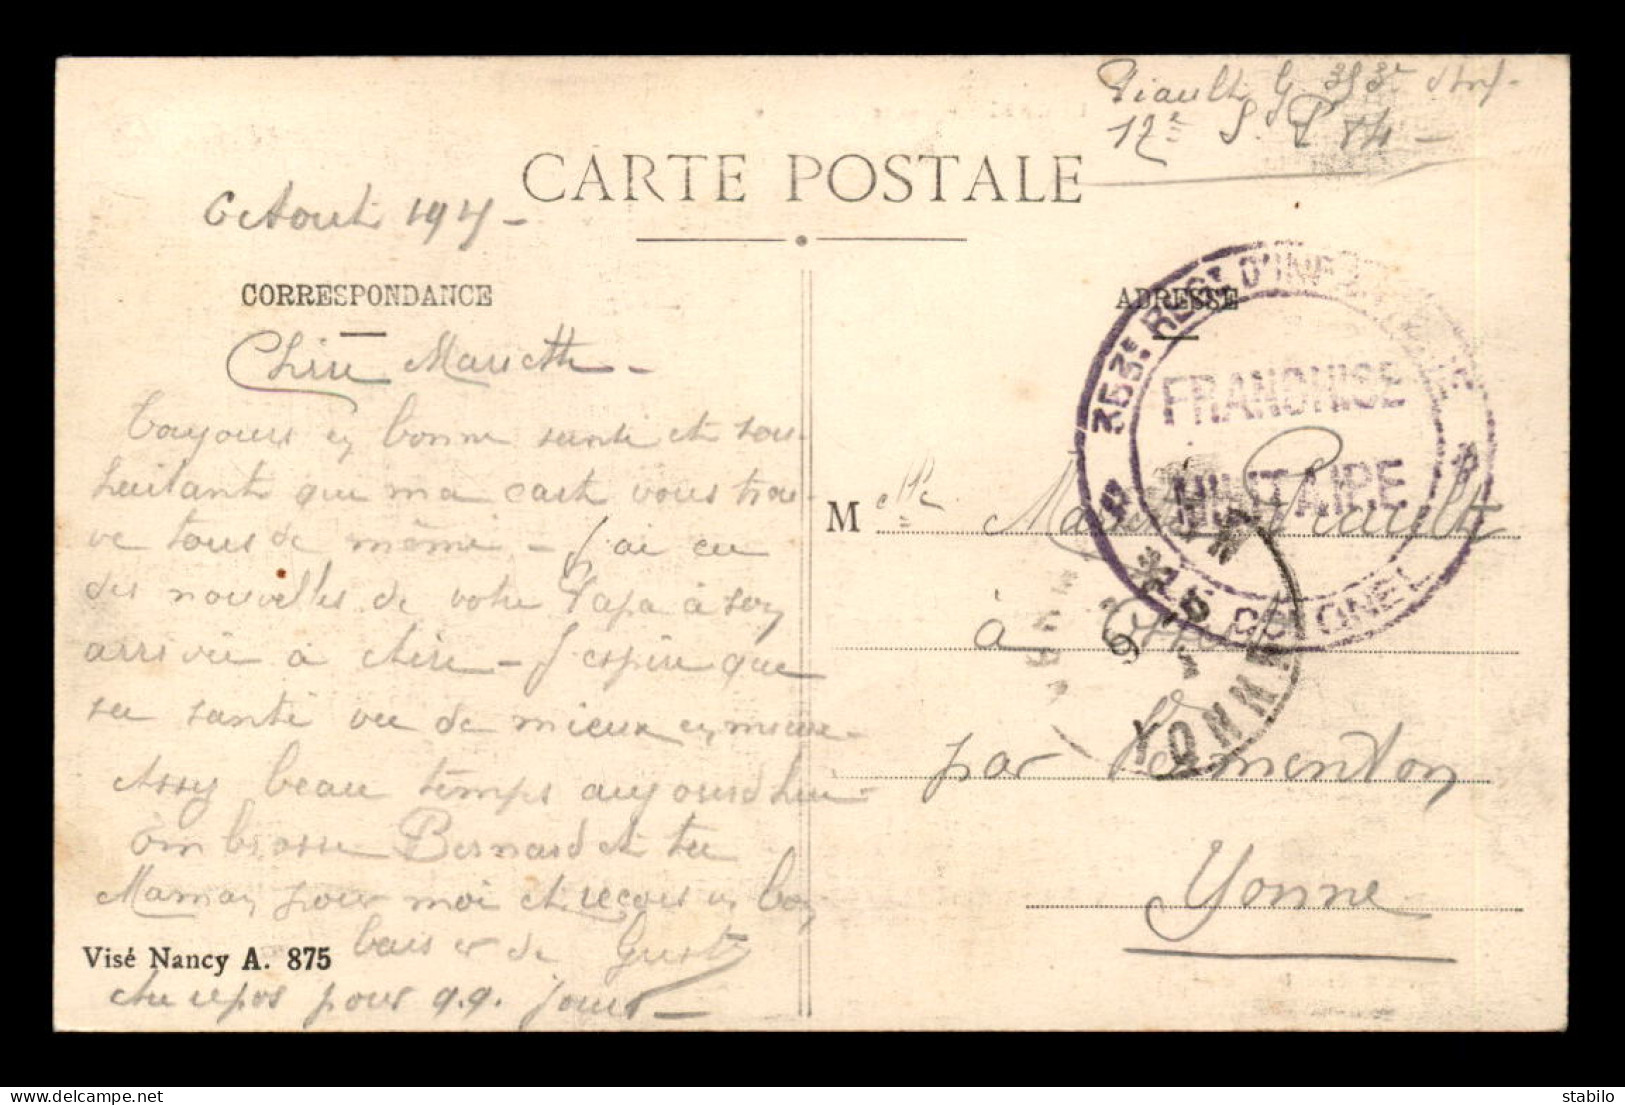 Piault G 353e d'Inf-
12e S. P 84 -
CARTE POSTALE
6 Aout 191 -
CORRESPONDANCE
ADRESSE
353e REGt D'INFANTERIE
FRANCHISE
MILITAIRE
LE COLONEL
Chère Mariette -
Toujours en bonne santé et sou-
haitant que ma carte vous trou-
ve tous de même - J'ai eu
des nouvelles de votre Papa à son
arrivée à - J'espère que
sa santé va de mieux en mieux -
Assy beau temps aujourd'hui -
embrasse Bernard et ta
Maman pour moi et reçois un bon
baiser de
Au repos pour q.q. jours -
Mlle Piault
à
par Vermenton
Yonne
YONNE
Visé Nancy A. 875
delcampe.net
the_seller